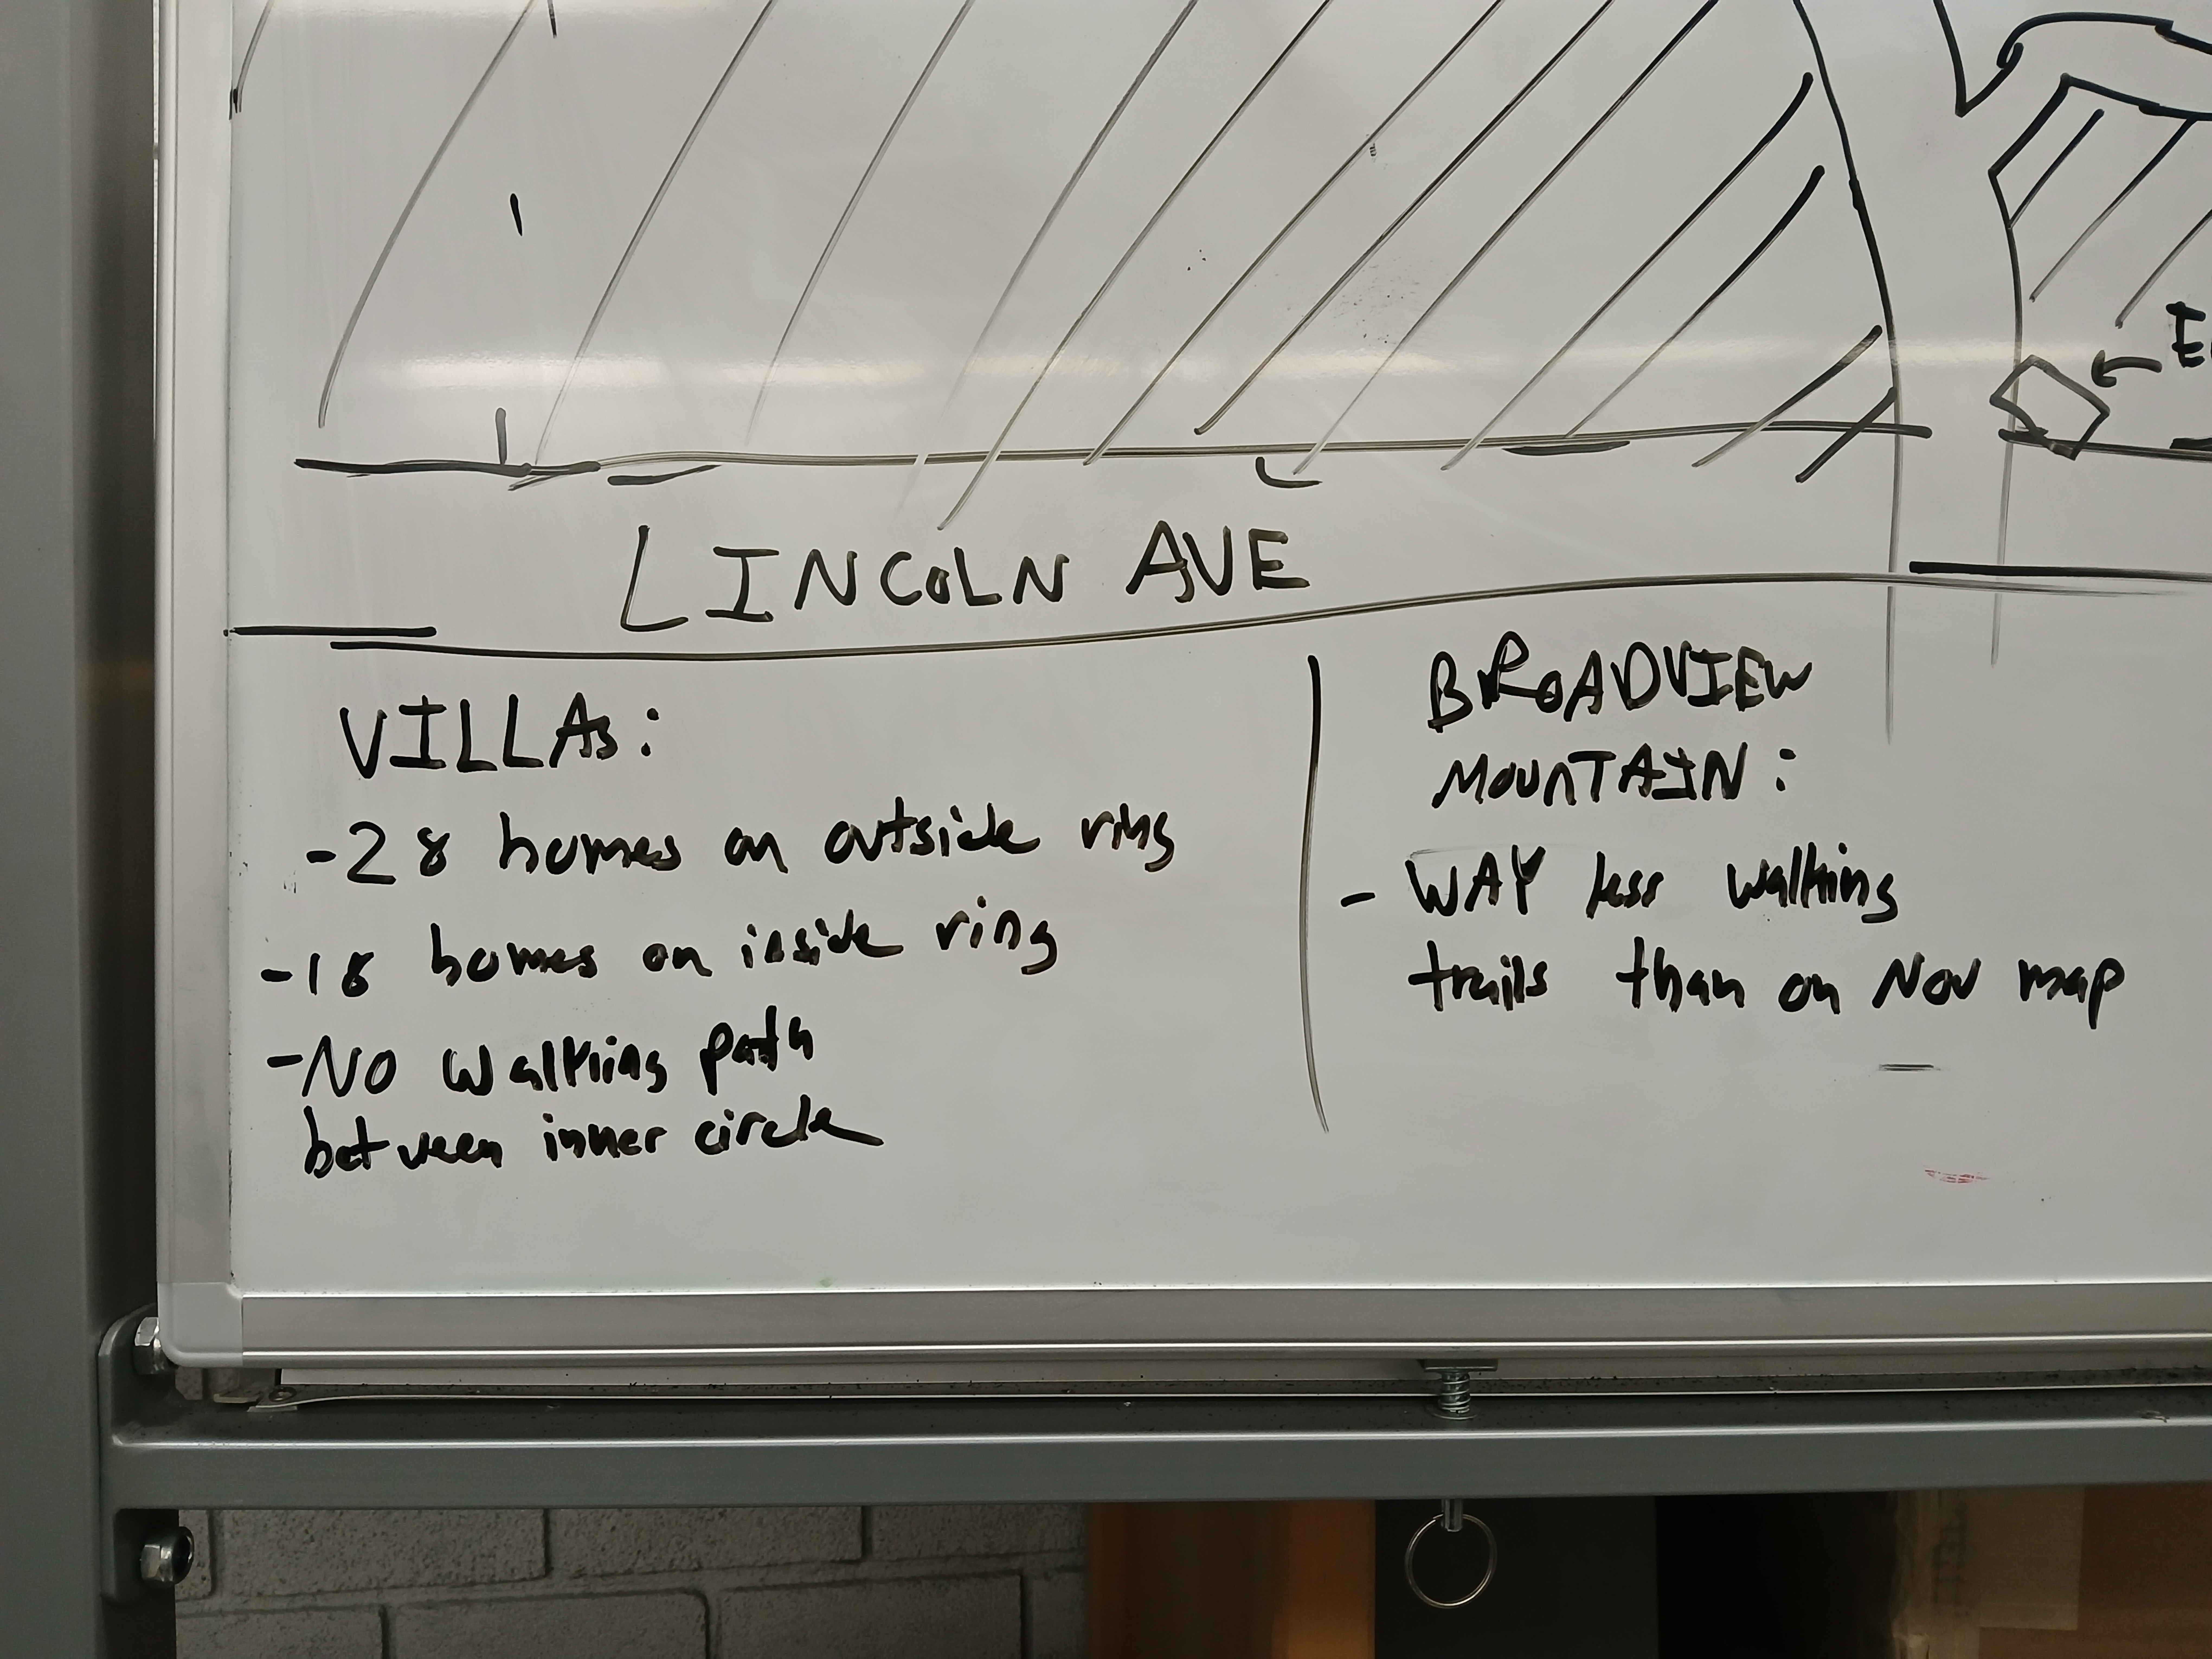 LINCOLN AVE
VILLAs:
-28 homes on outside ring
-18 homes on inside ring
-NO walking path
between inner circle
BROADVIEW
MOUNTAIN:
- WAY less walking
trails than on Nov map